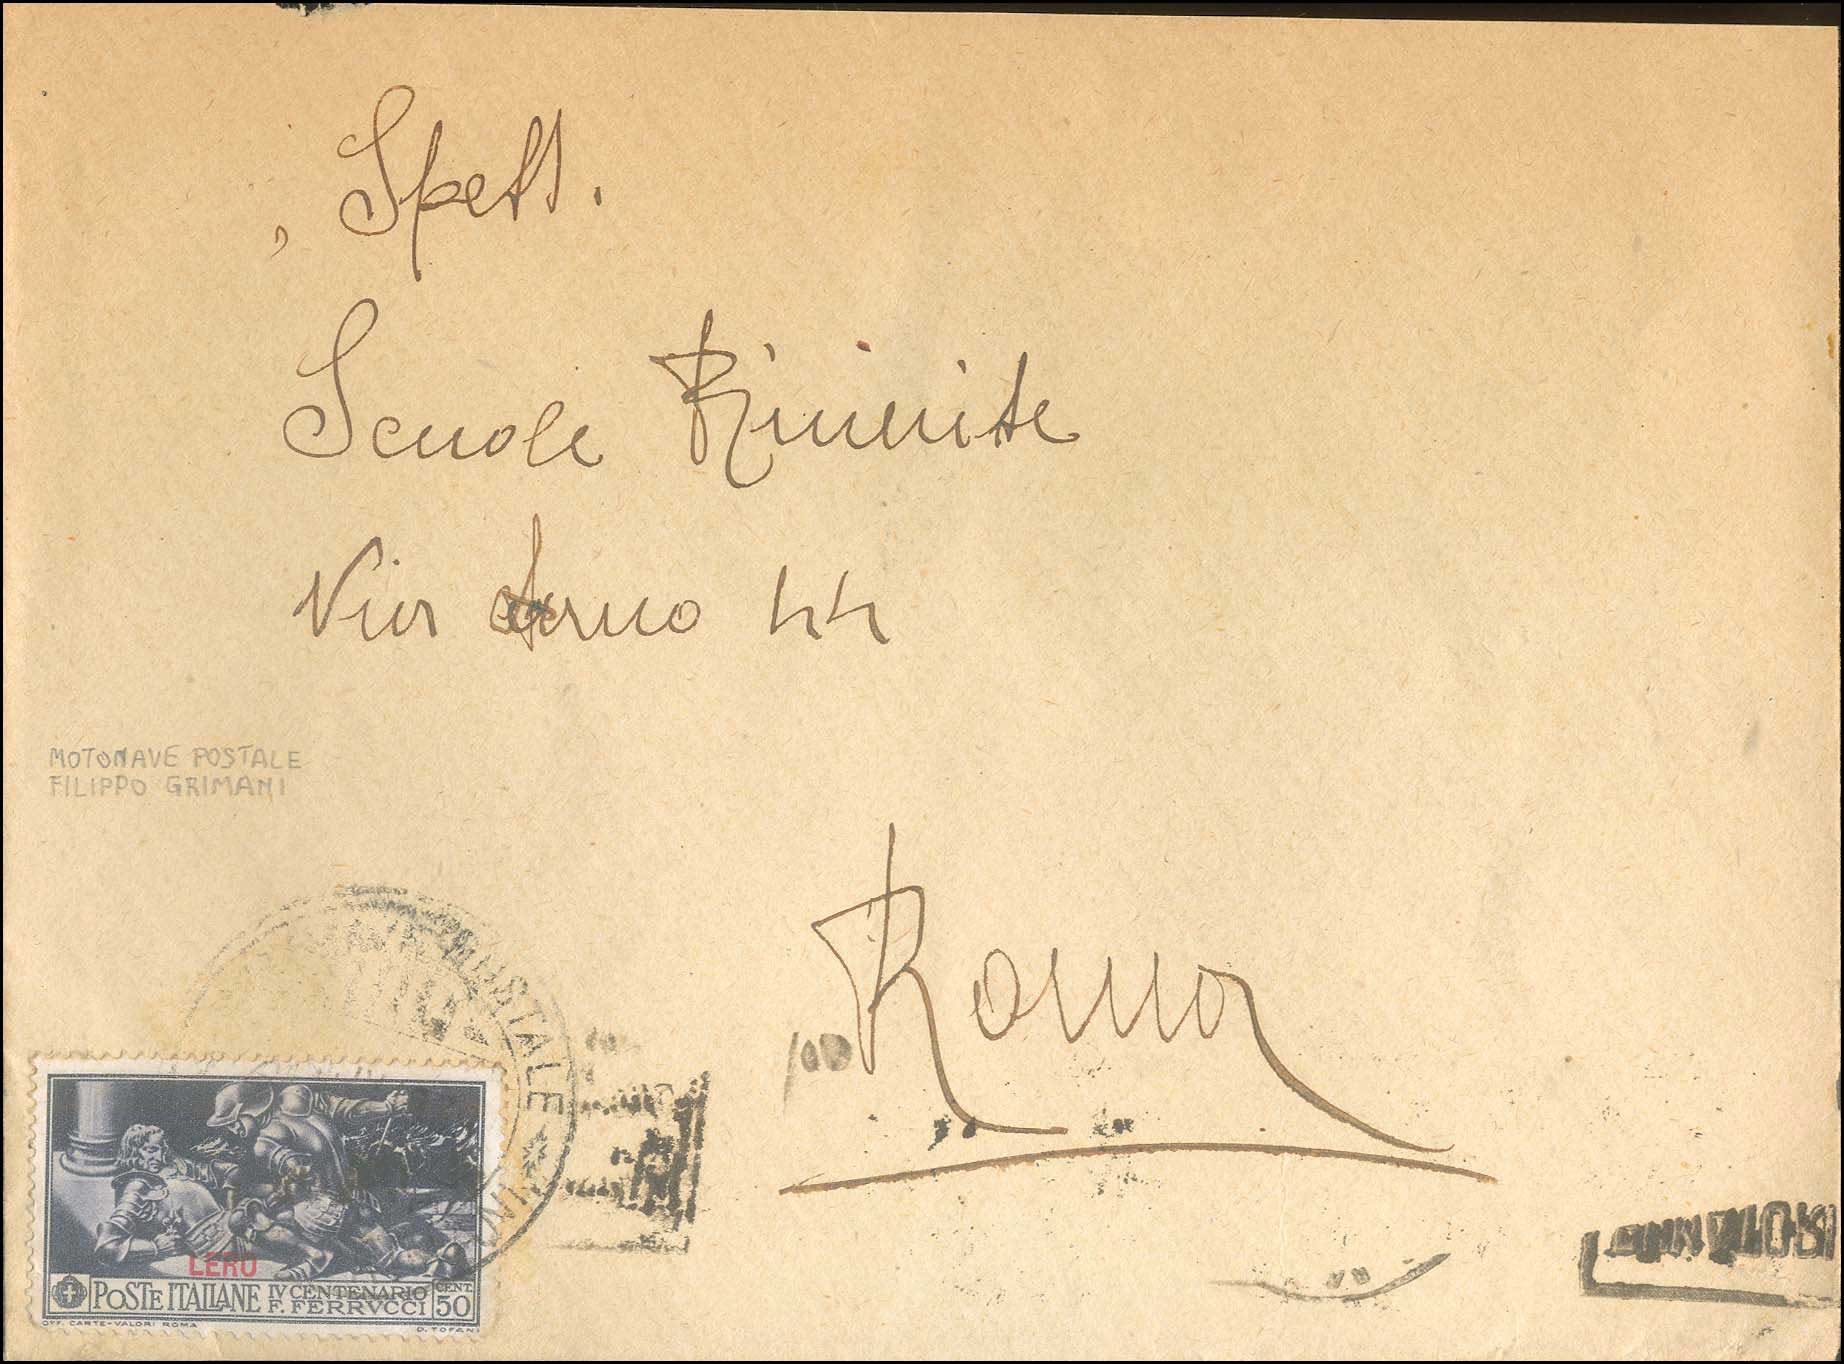 Spett.
Scuole Riunite
Via Arno 44
MOTONAVE POSTALE
FILIPPO GRIMANI
Roma
POSTALE
LERO
POSTE ITALIANE IV CENTENARIO F. FERRVCCI CENT. 50
OFF. CARTE-VALORI ROMA D. TOFANI